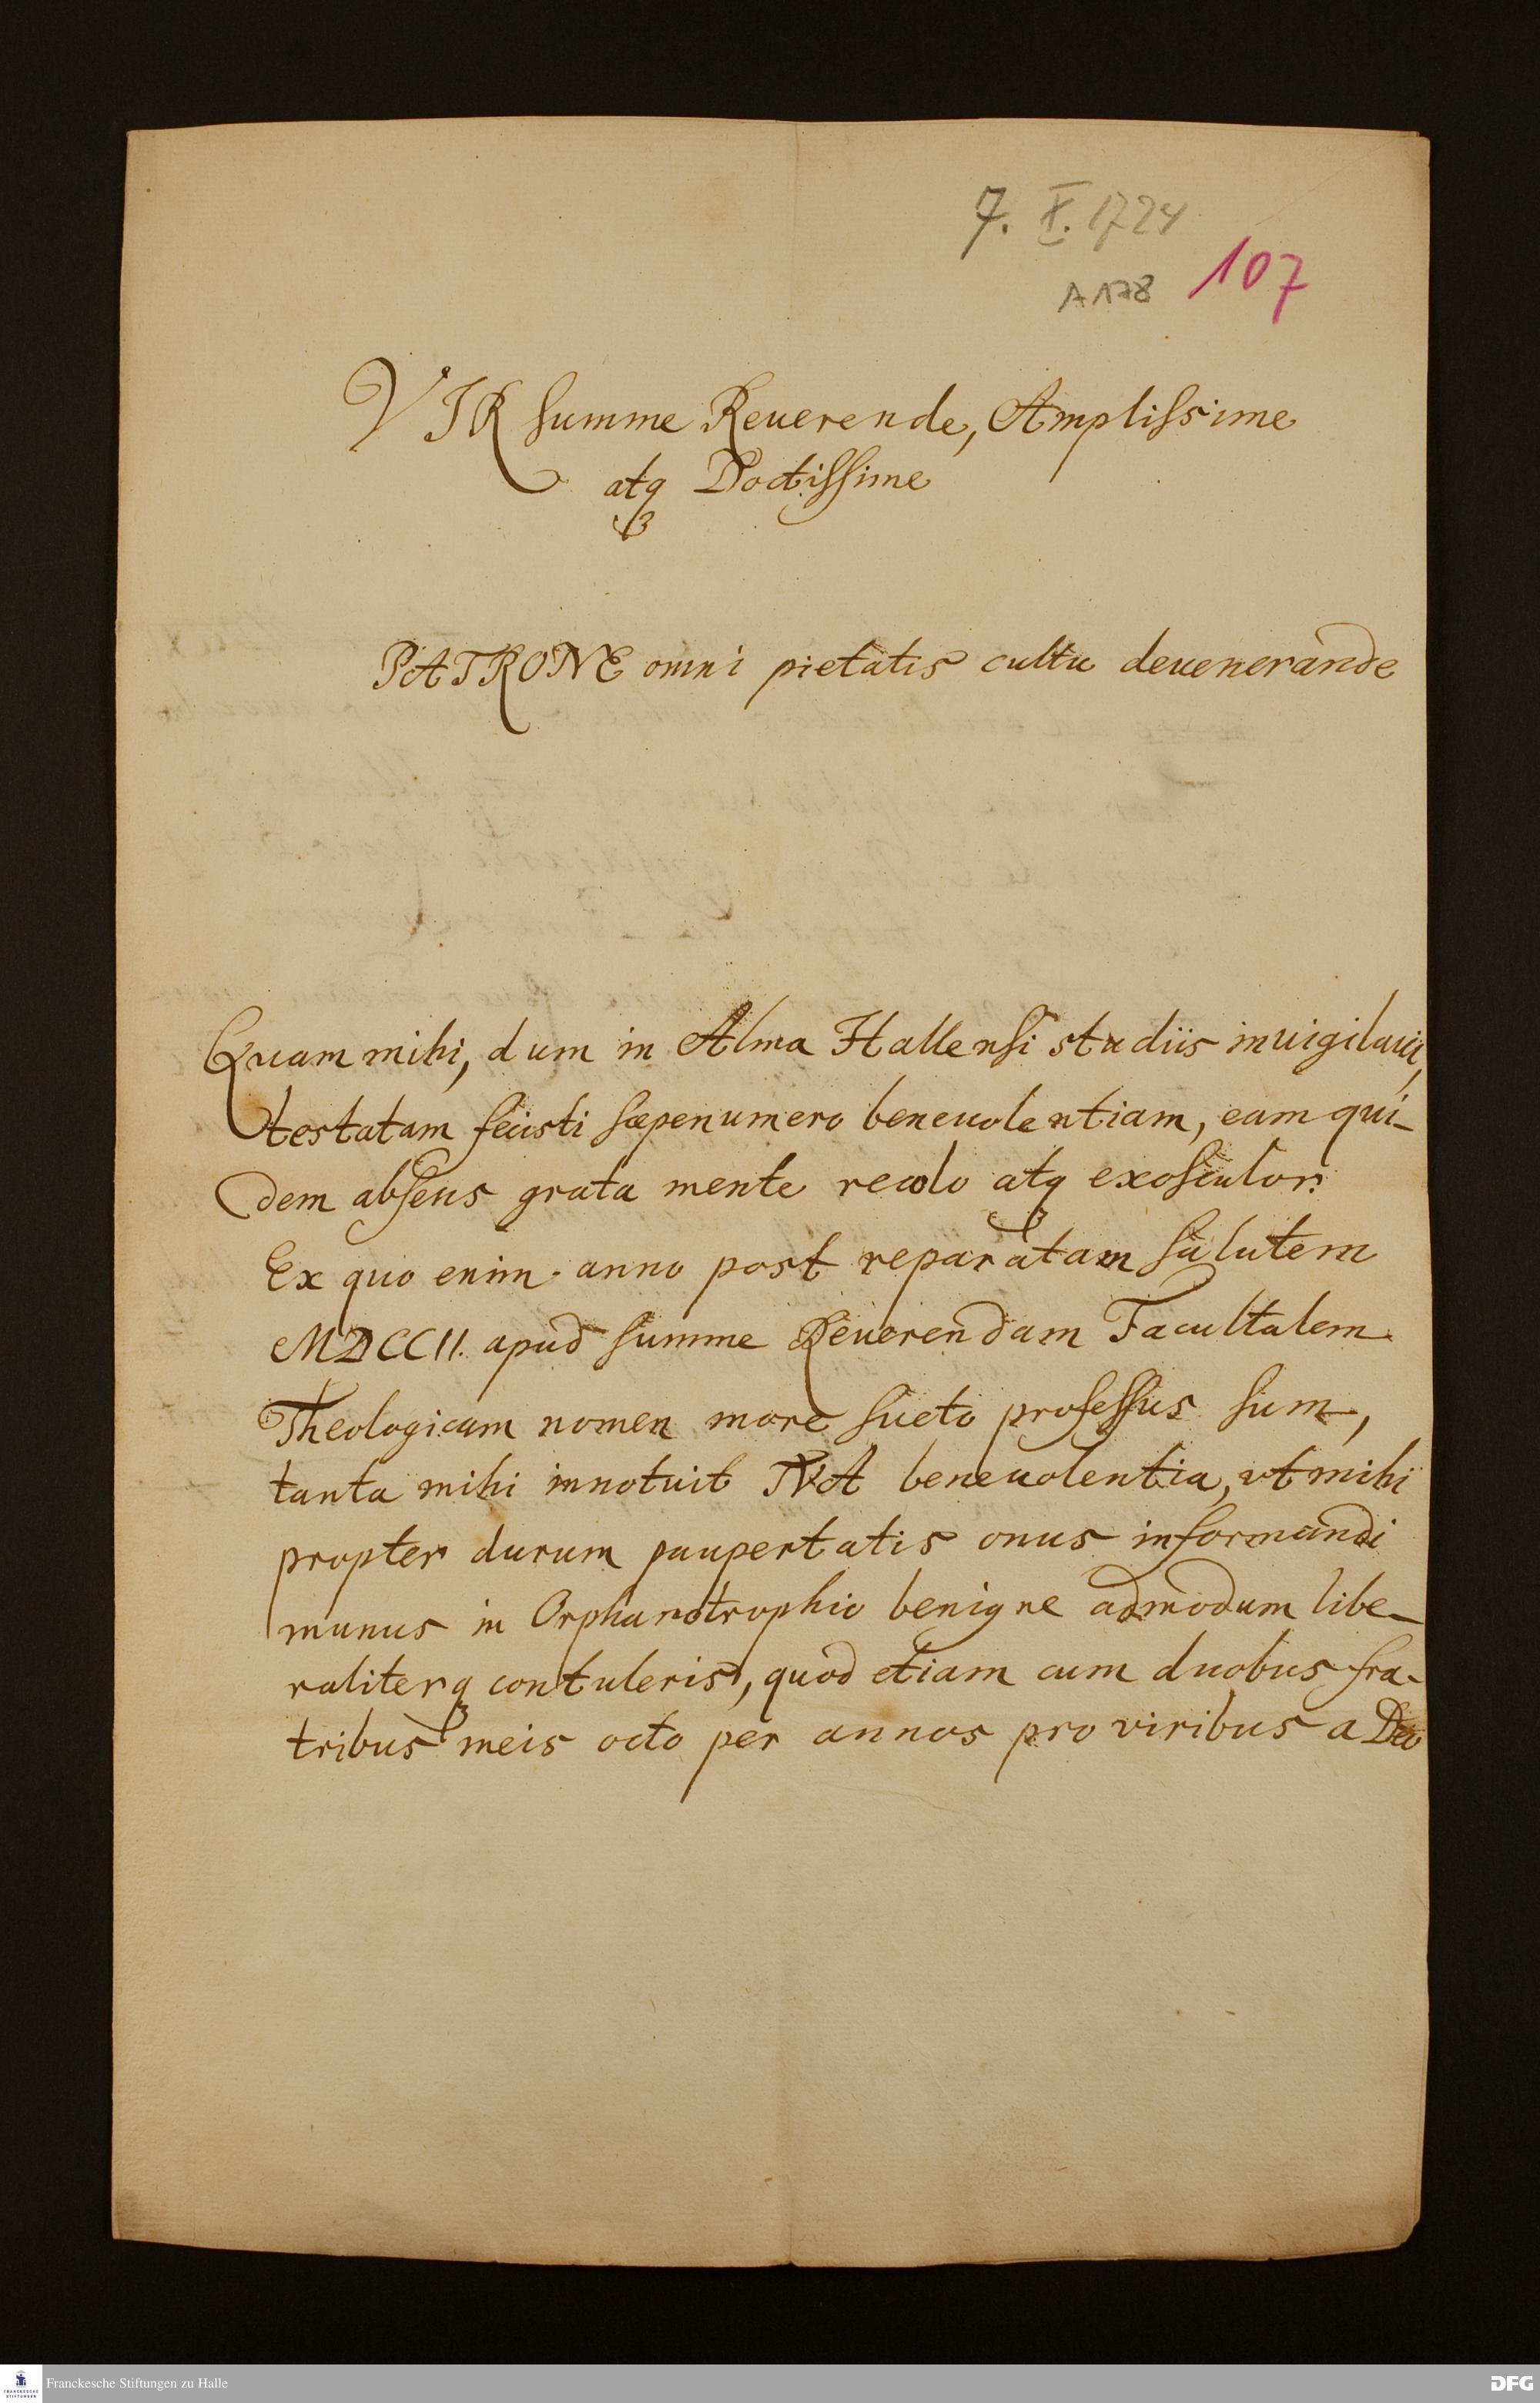 7. X. 1724
A 178 107
VIR summe Reuerende, Amplissime
atq₃ Doctissime
PATRONE omni pietatis cultu deuenerande
Quam mihi, dum in Alma Hallensi studiis inuigilaui,
testatam fecisti sæpenumero beneuolentiam, eam qui-
dem absens grata mente recolo atq₃ exosculor:
Ex quo enim anno post reparatam salutem
MDCCII. apud summe Reuerendam Facultatem
Theologicam nomen more sueto professus sum,
tanta mihi innotuit TVA beneuolentia, vt mihi
propter durum paupertatis onus informandi
munus in Orphanotrophio benigne admodum libe-
raliterq₃ contuleris, quod etiam cum duobus fra-
tribus meis octo per annos pro viribus a Deo
Franckesche Stiftungen zu Halle
FRANCKESCHE STIFTUNGEN
DFG